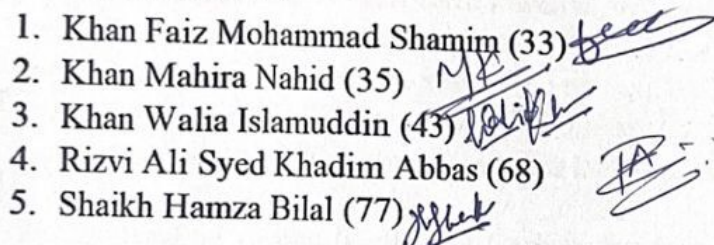 1. Khan Faiz Mohammad Shamim (33)
2. Khan Mahira Nahid (35) MK
3. Khan Walia Islamuddin (43)
4. Rizvi Ali Syed Khadim Abbas (68)
5. Shaikh Hamza Bilal (77)